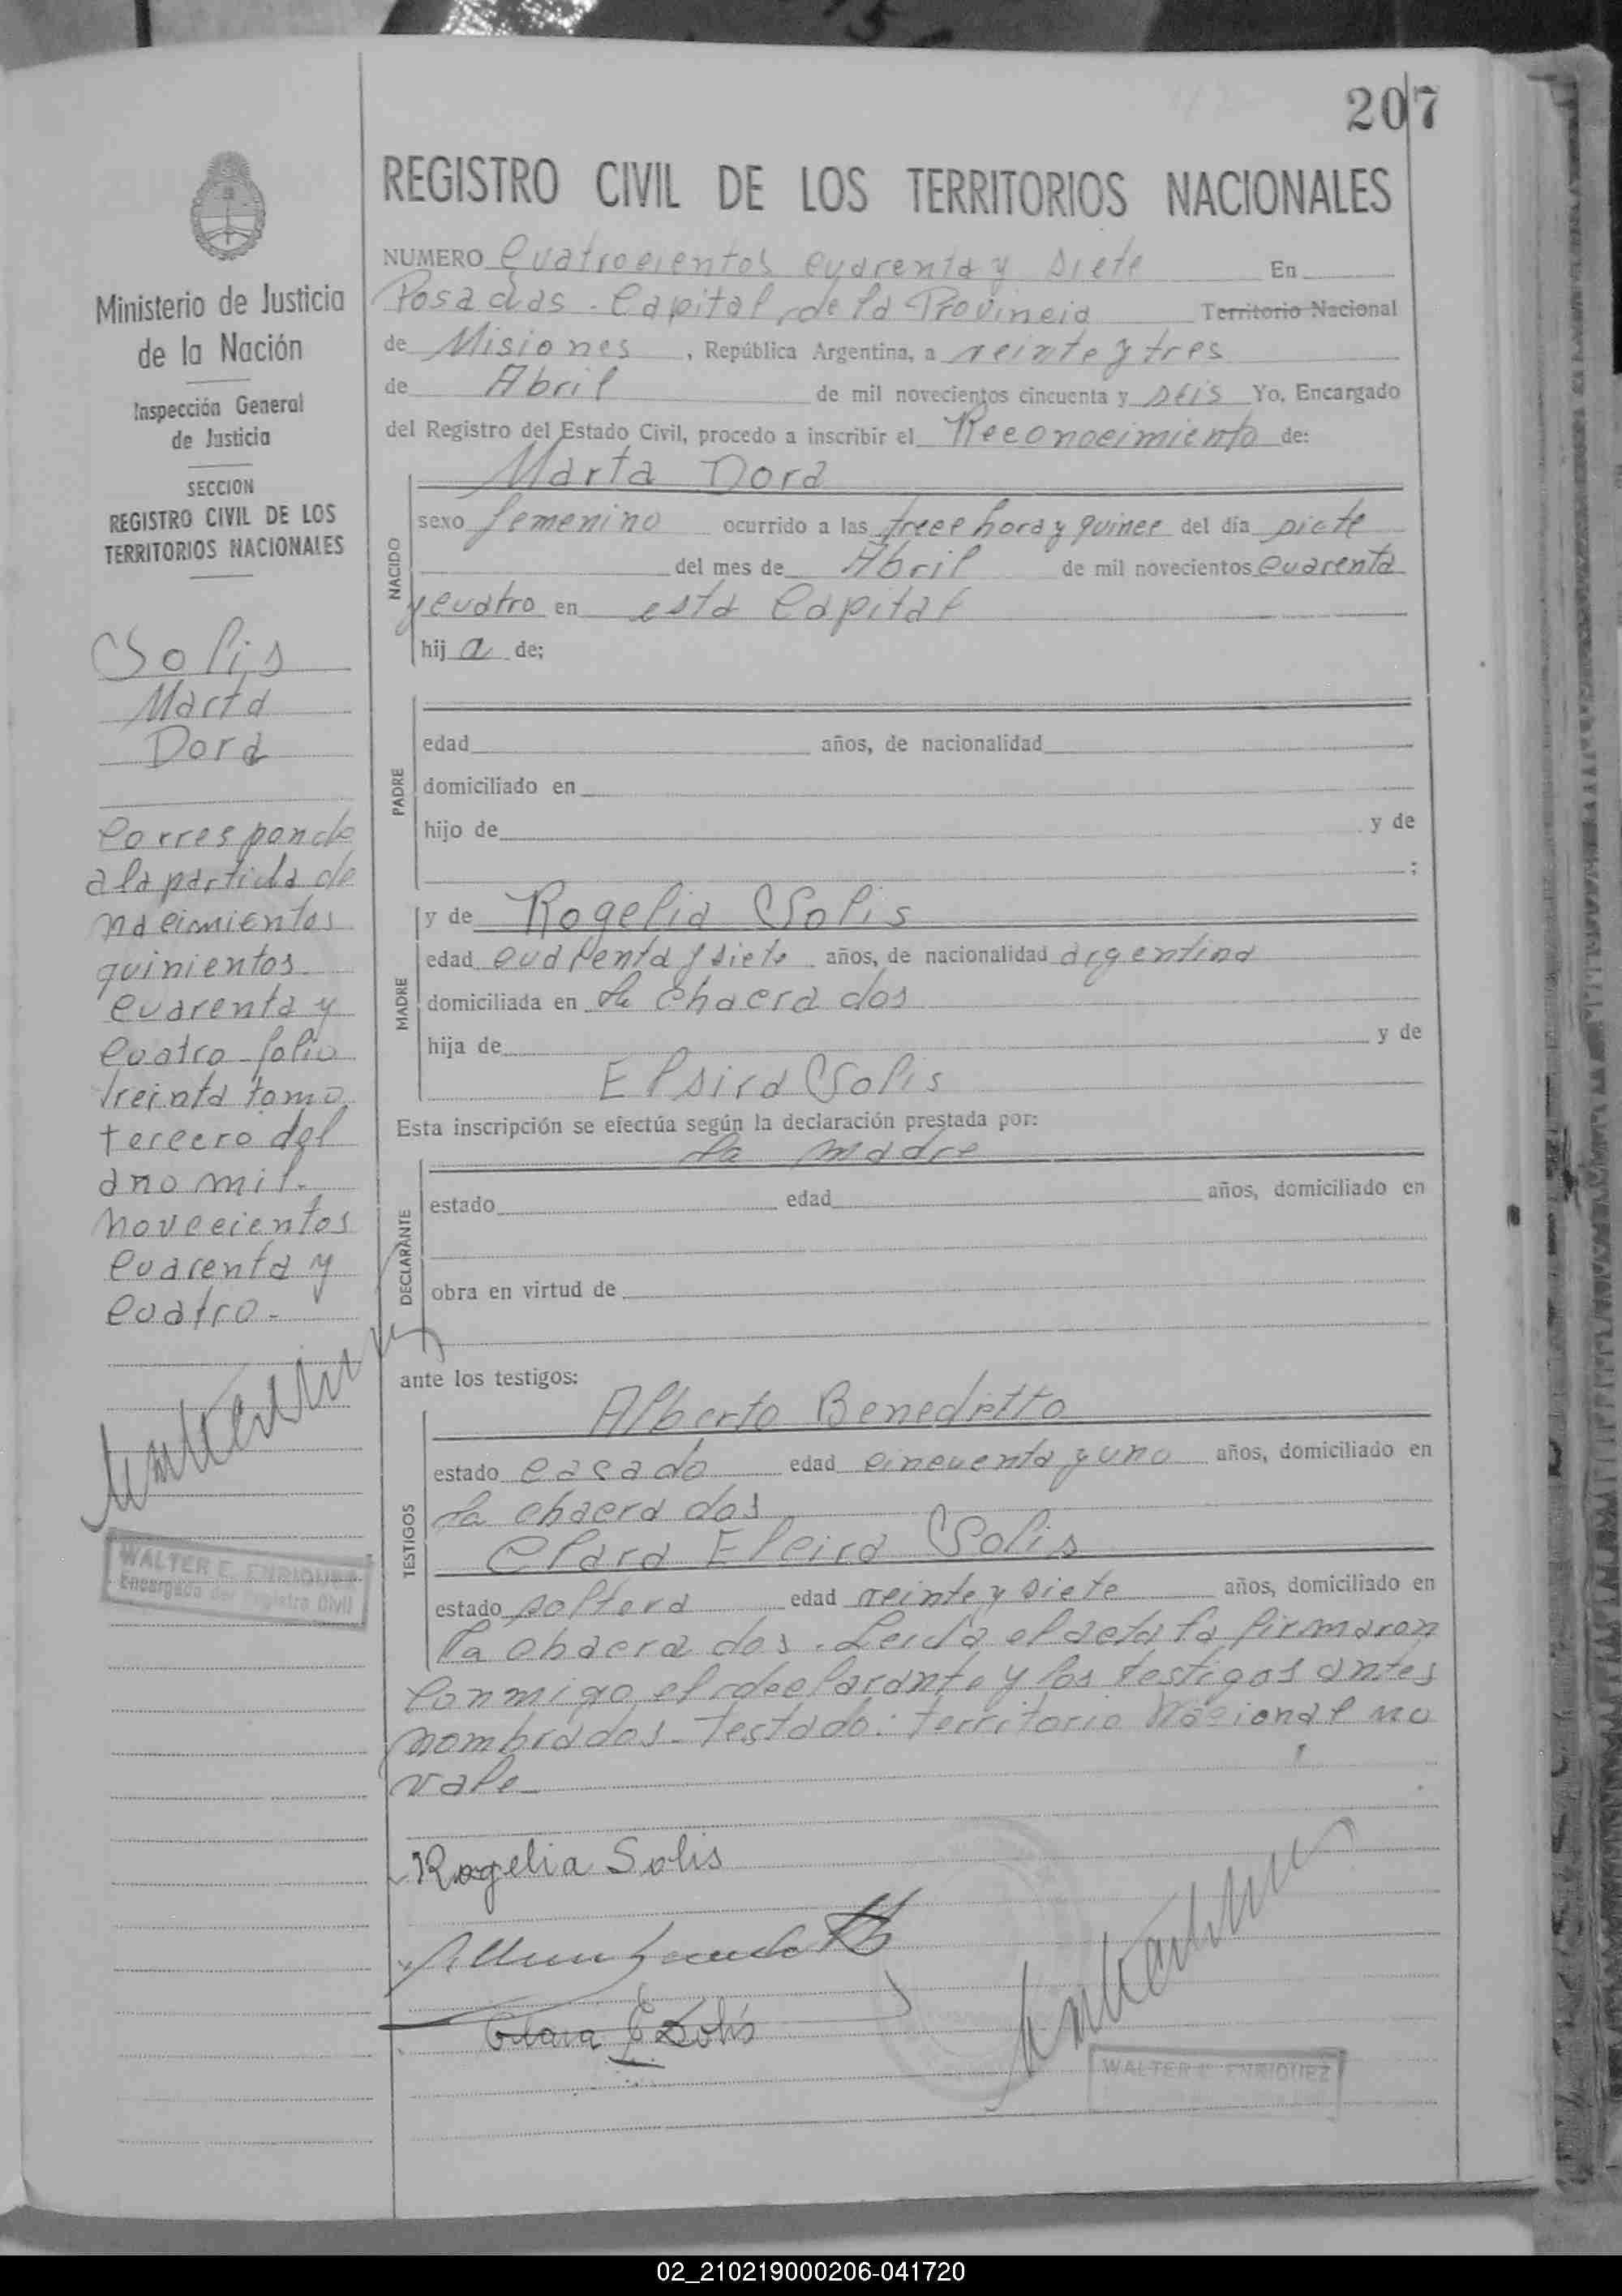 207
REGISTRO CIVIL DE LOS TERRITORIOS NACIONALES
NUMERO Cuatrocientos cuarenta y siete En
Posadas - Capital de la Provincia Territorio Nacional
de Misiones, República Argentina, a veinte y tres
de Abril de mil novecientos cincuenta y seis Yo, Encargado
del Registro del Estado Civil, procedo a inscribir el Reconocimiento de:
NACIDO
Marta Dora
sexo femenino ocurrido a las trece hora y quince del día siete
del mes de Abril de mil novecientos cuarenta
y cuatro en esta Capital
hij a de:
PADRE
edad años, de nacionalidad
domiciliado en
hijo de y de
;
MADRE
y de Rogelia Solis
edad cuarenta y siete años, de nacionalidad argentina
domiciliada en la chacra dos
hija de y de
Elsira Solis
Esta inscripción se efectúa según la declaración prestada por:
la madre
DECLARANTE
estado edad años, domiciliado en
obra en virtud de
ante los testigos:
TESTIGOS
Alberto Benedetto
estado casado edad cincuenta y uno años, domiciliado en
la chacra dos
Clara Elcira Solis
estado soltera edad veinte y siete años, domiciliado en
la chacra dos. Leida el acta la firmaron
conmigo el declarante y los testigos antes
nombrados. Testado: territorio Nacional no
vale
Rogelia Solis
Clara E Solis
WALTER E. ENRIQUEZ
Ministerio de Justicia
de la Nación
Inspección General
de Justicia
SECCION
REGISTRO CIVIL DE LOS
TERRITORIOS NACIONALES
Solis
Marta
Dora
Corresponde
a la partida de
nacimientos
quinientos
cuarenta y
cuatro folio
treinta tomo
tercero del
ano mil
novecientos
cuarenta y
cuatro.
WALTER E. ENRIQUEZ
Encargado del Registro Civil
02_210219000206-041720